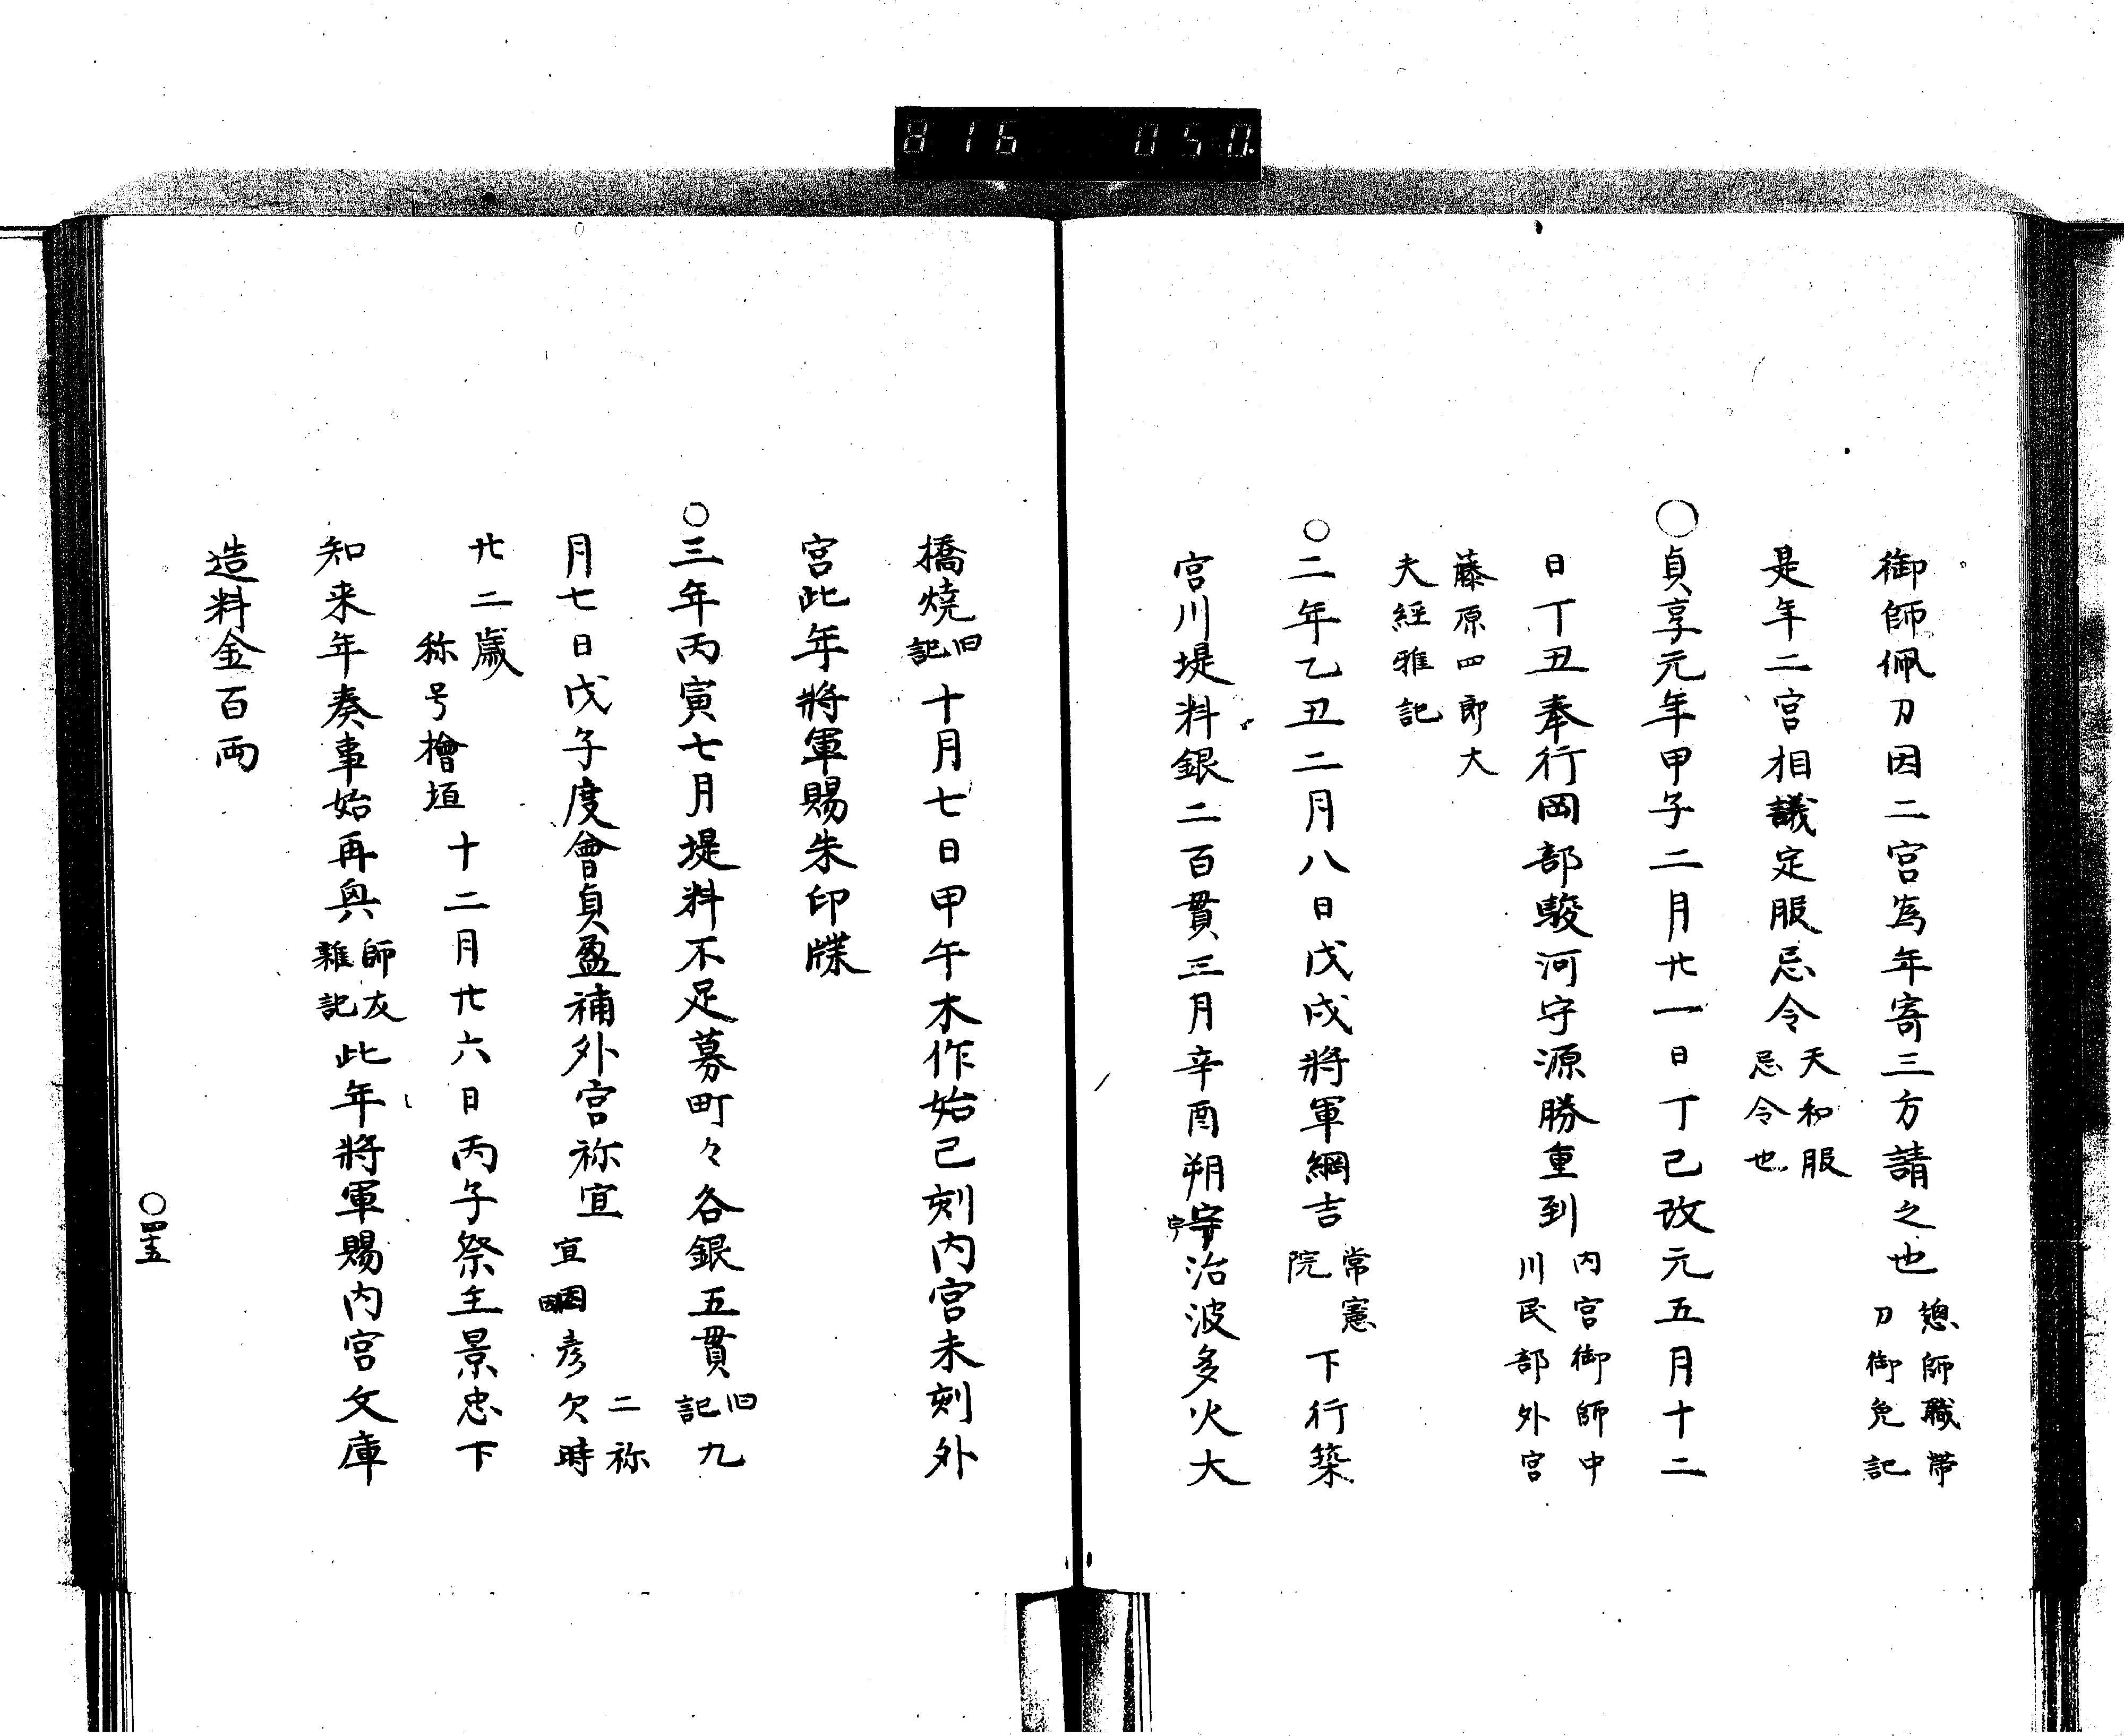 816 050.
御師佩刀因二宮為年寄三方請之也 總師職帶刀御免記
是年二宮相議定服忌令 天和服忌令也
○貞享元年甲子二月廿一日丁巳改元五月十二
日丁丑奉行岡部駿河守源勝重到 内宮御師中川民部外宮
藤原四郎大夫經雅記
○二年乙丑二月八日戊戌將軍綱吉 常憲院 下行築
宮川堤料銀二百貫三月辛酉朔宇治波多火大
橋燒 旧記 十月七日甲午木作始己刻内宮未刻外
宮此年將軍賜朱印牒
○三年丙寅七月堤料不足募町々各銀五貫 旧記 九
月七日戊子度會貞盈補外宮祢宜 二祢宜因彦欠時
廿二歳 称号檜垣 十二月廿六日丙子祭主景忠下
知来年奏事始再興 師友雜記 此年將軍賜内宮文庫
造料金百両
○四十五